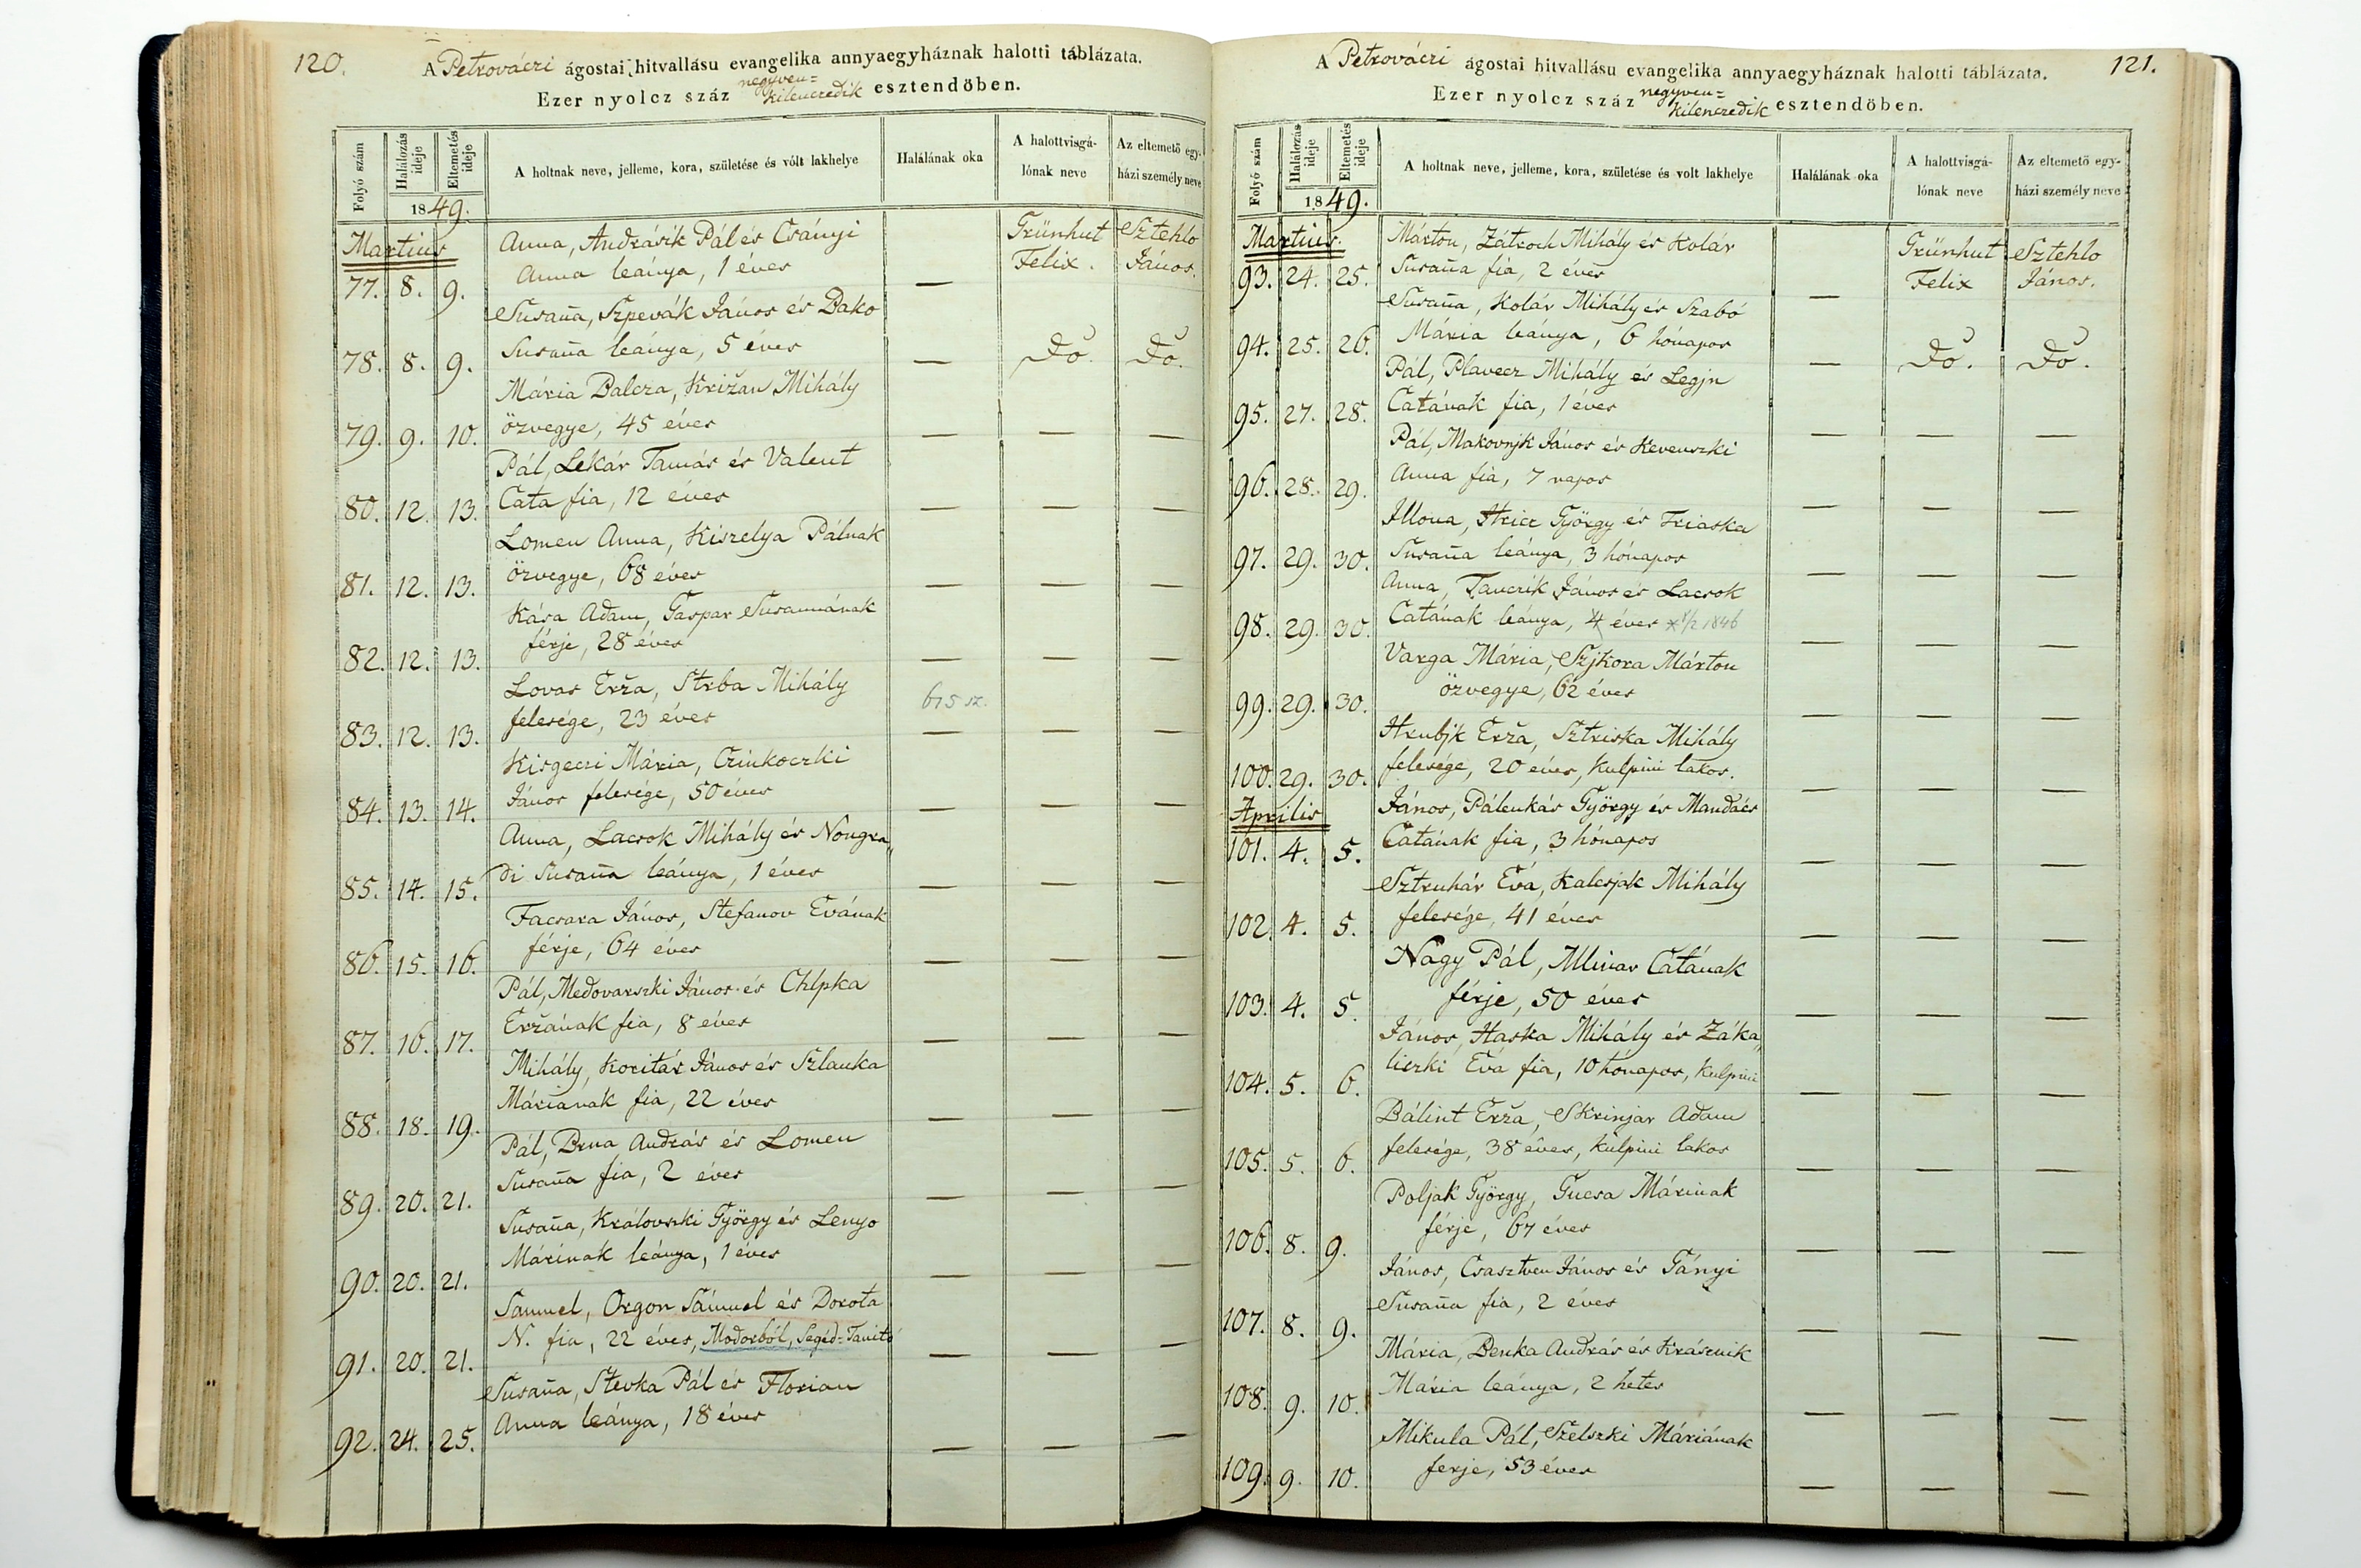 120.
A Petrováczi ágostai hitvallásu evangelika annyaegyháznak halotti táblázata.
Ezer nyolcz száz negyven=kilenczedik esztendöben.
Folyó szám
Halálozás ideje
Eltemetés ideje
A holtnak neve, jelleme, kora, születése és vólt lakhelye
Halálának oka
A halottvisgálónak neve
Az eltemető egyházi személy neve
1849.
Martius
Anna, Andrásik Pál és Csányi
77. 8. 9. Anna leánya, 1 éves — Grünhut Felix. Sztehlo János.
Susaña, Szpevák János és Dako
78. 8. 9. Susaña leánya, 5 éves — Do. Do.
Mária Balcza, Križan Mihály
79. 9. 10. özvegye, 45 éves — — —
Pál, Lekár Tamás és Valent
80. 12. 13. Cata fia, 12 éves — — —
Lomen Anna, Kiszelya Pálnak
81. 12. 13. özvegye, 68 éves — — —
Kása Adam, Gaspar Susannának
82. 12. 13. férje, 28 éves — — —
Lovas Erža, Strba Mihály
83. 12. 13. felesége, 23 éves 615 sz. — — —
Kisgeczi Mária, Czinkoczki
84. 13. 14. János felesége, 50 éves — — —
Anna, Lacsok Mihály és Nongra„
85. 14. 15. di Susaña leánya, 1 éves — — —
Facsara János, Stefanov Evának
86. 15. 16. férje, 64 éves — — —
Pál, Medovarszki János és Chlpka
87. 16. 17. Eržának fia, 8 éves — — —
Mihály, Koritár János és Szlanka
88. 18. 19. Máriának fia, 22 éves — — —
Pál, Brna András és Lomen
89. 20. 21. Susaña fia, 2 éves — — —
Susaña, Královszki György és Lenyo
90. 20. 21. Márinak leánya, 1 éves — — —
Samuel, Orgon Sámuel és Dorota
91. 20. 21. N. fia, 22 éves, Modorból, Segéd=Tanitó — — —
Susaña, Stevka Pál és Florian
92. 24. 25. Anna leánya, 18 éves — — —
121.
A Petrováczi ágostai hitvallásu evangelika annyaegyháznak halotti táblázata.
Ezer nyolcz száz negyven=kilenczedik esztendöben.
Folyó szám
Halálozás ideje
Eltemetés ideje
A holtnak neve, jelleme, kora, születése és volt lakhelye
Halálának oka
A halottvisgálónak neve
Az eltemető egyházi személy neve
1849.
Martius.
Márton, Zátroch Mihály és Kolár
93. 24. 25. Susaña fia, 2 éves — Grünhut Felix Sztehlo János.
Susaña, Kolár Mihály és Szabó
94. 25. 26. Maria leánya, 6 hónapos — Do. Do.
Pál, Plavecz Mihály és Legjn
95. 27. 28. Catának fia, 1 éves — — —
Pál, Makovnjk János és Kevenszki
96. 28. 29. Anna fia, 7 napos — — —
Illona, Hricz György és Triaska
97. 29. 30. Susaña leánya, 3 hónapos — — —
Anna, Tanczik János és Lacsok
98. 29. 30. Catának leánya, 4 éves 1846 — — —
Varga Mária, Szjkora Márton
99. 29. 30. özvegye, 62 éves — — —
Hrubjk Erža, Sztriska Mihály
100. 29. 30. felesége, 20 éves, Kulpini lakos. — — —
Aprilis
János, Pálenkás György és Mandács
101. 4. 5. Catának fia, 3 hónapos — — —
Sztruhár Éva, Kalesjak Mihály
102. 4. 5. felesége, 41 éves — — —
Nagy Pál, Mlinar Catának
103. 4. 5. férje, 50 éves — — —
János, Haska Mihály és Záka„
104. 5. 6. liczki Éva fia, 10 hónapos, Kulpini — — —
Bálint Erža, Skrinjar Adam
105. 5. 6. felesége, 38 éves, Kulpini lakos — — —
Poljak György, Gucsa Márinak
106. 8. 9. férje, 67 éves — — —
János, Csasztven János és Tányi
107. 8. 9. Susaña fia, 2 éves — — —
Mária, Benka András és Krásznik
108. 9. 10. Mária leánya, 2 hetes — — —
Mikula Pál, Szelszki Máriának
109. 9. 10. ferje, 53 éves — — —